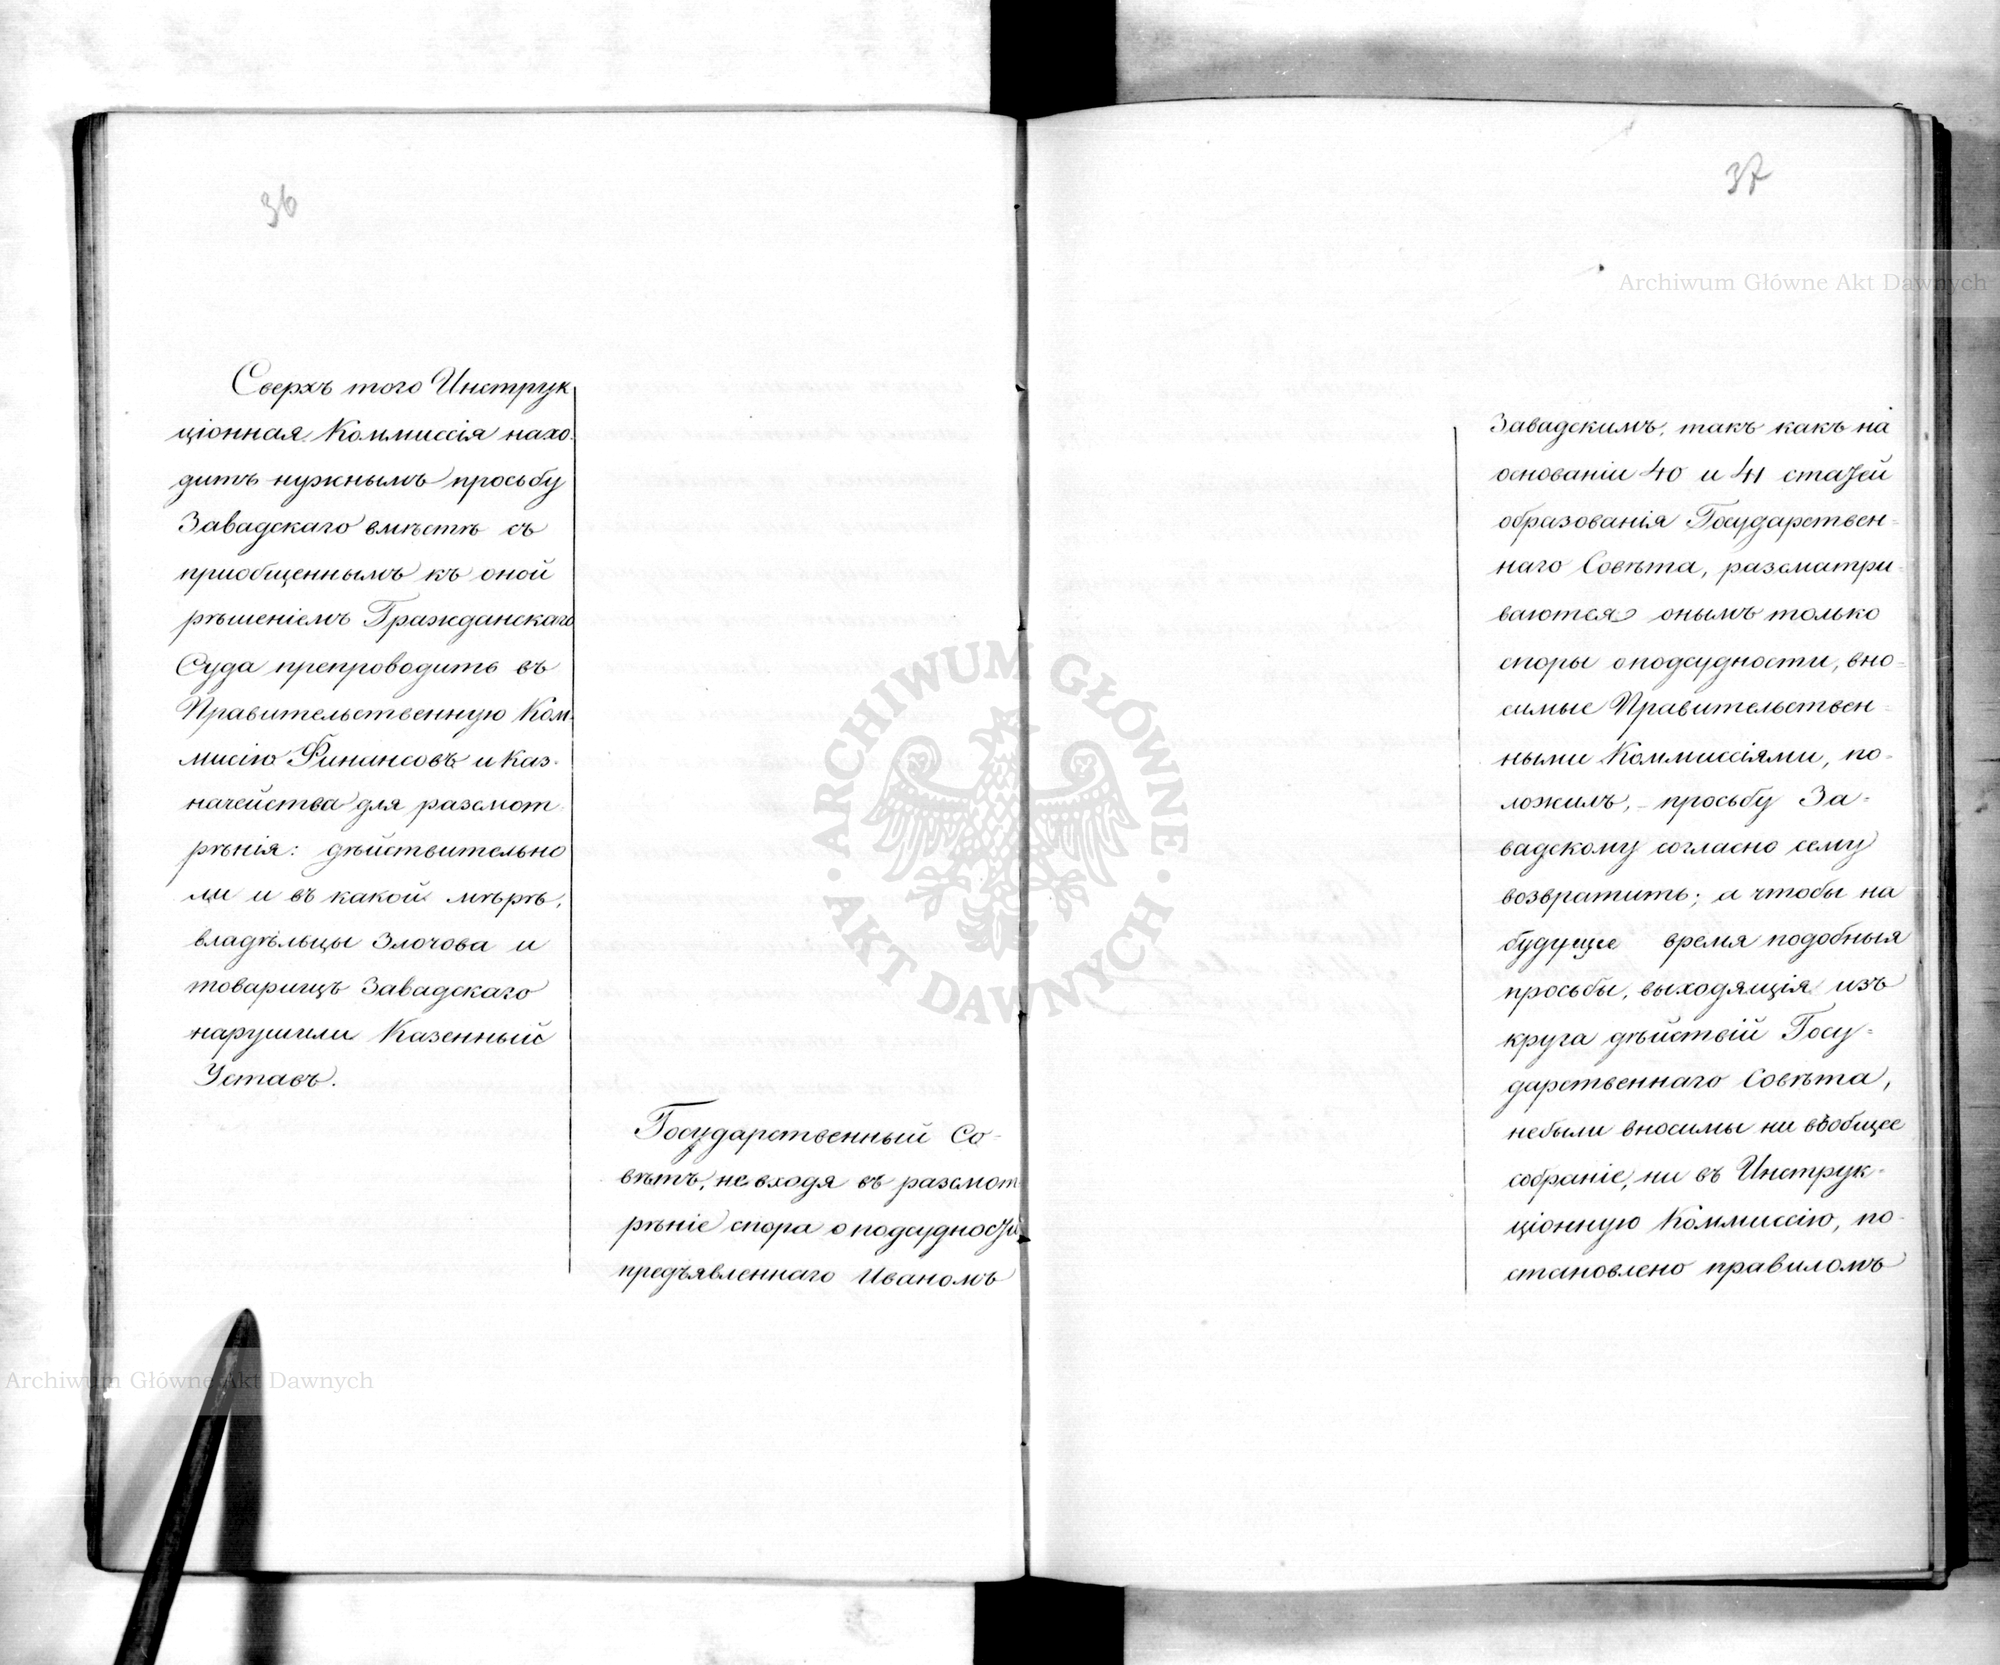 36
Сверхъ того Инструк
ціонная Коммиссія нахо-
дитъ нужнымъ просьбу
Завадскаго вмѣстѣ съ
приобщеннымъ къ оной
рѣшеніемъ Гражданскаго
Суда препроводить въ
Правительственную Ком-
мисію Финансовъ и Каз-
начейства для разсмот-
рѣнія: дѣйствительно
ли и въ какой мѣрѣ,
владѣльцы Злочова и
товарищъ Завадскаго
нарушили Казенный
Уставъ.
Государственный Со-
вѣтъ, не входя въ разсмот
рѣніе спора о подсудности
предъявленнаго Иваномъ
37
Завадскимъ, такъ какъ на
основаніи 40 и 41 статей
образованія Государствен-
наго Совѣта, разсматри-
ваются онымъ только
споры о подсудности, вно-
симые Правительствен-
ными Коммиссіями, по-
ложилъ, - просьбу За-
вадскому согласно сему
возвратить; а чтобы на
будущее время подобныя
просьбы, выходящія изъ
круга дѣйствій Госу-
дарственнаго Совѣта,
небыли вносимы ни вобщее
собраніе, ни въ Инструк-
ціонную Коммиссію, по-
становлено правиломъ
ARCHIWUM GŁÓWNE · AKT DAWNYCH ·
Archiwum Główne Akt Dawnych
Archiwum Główne Akt Dawnych